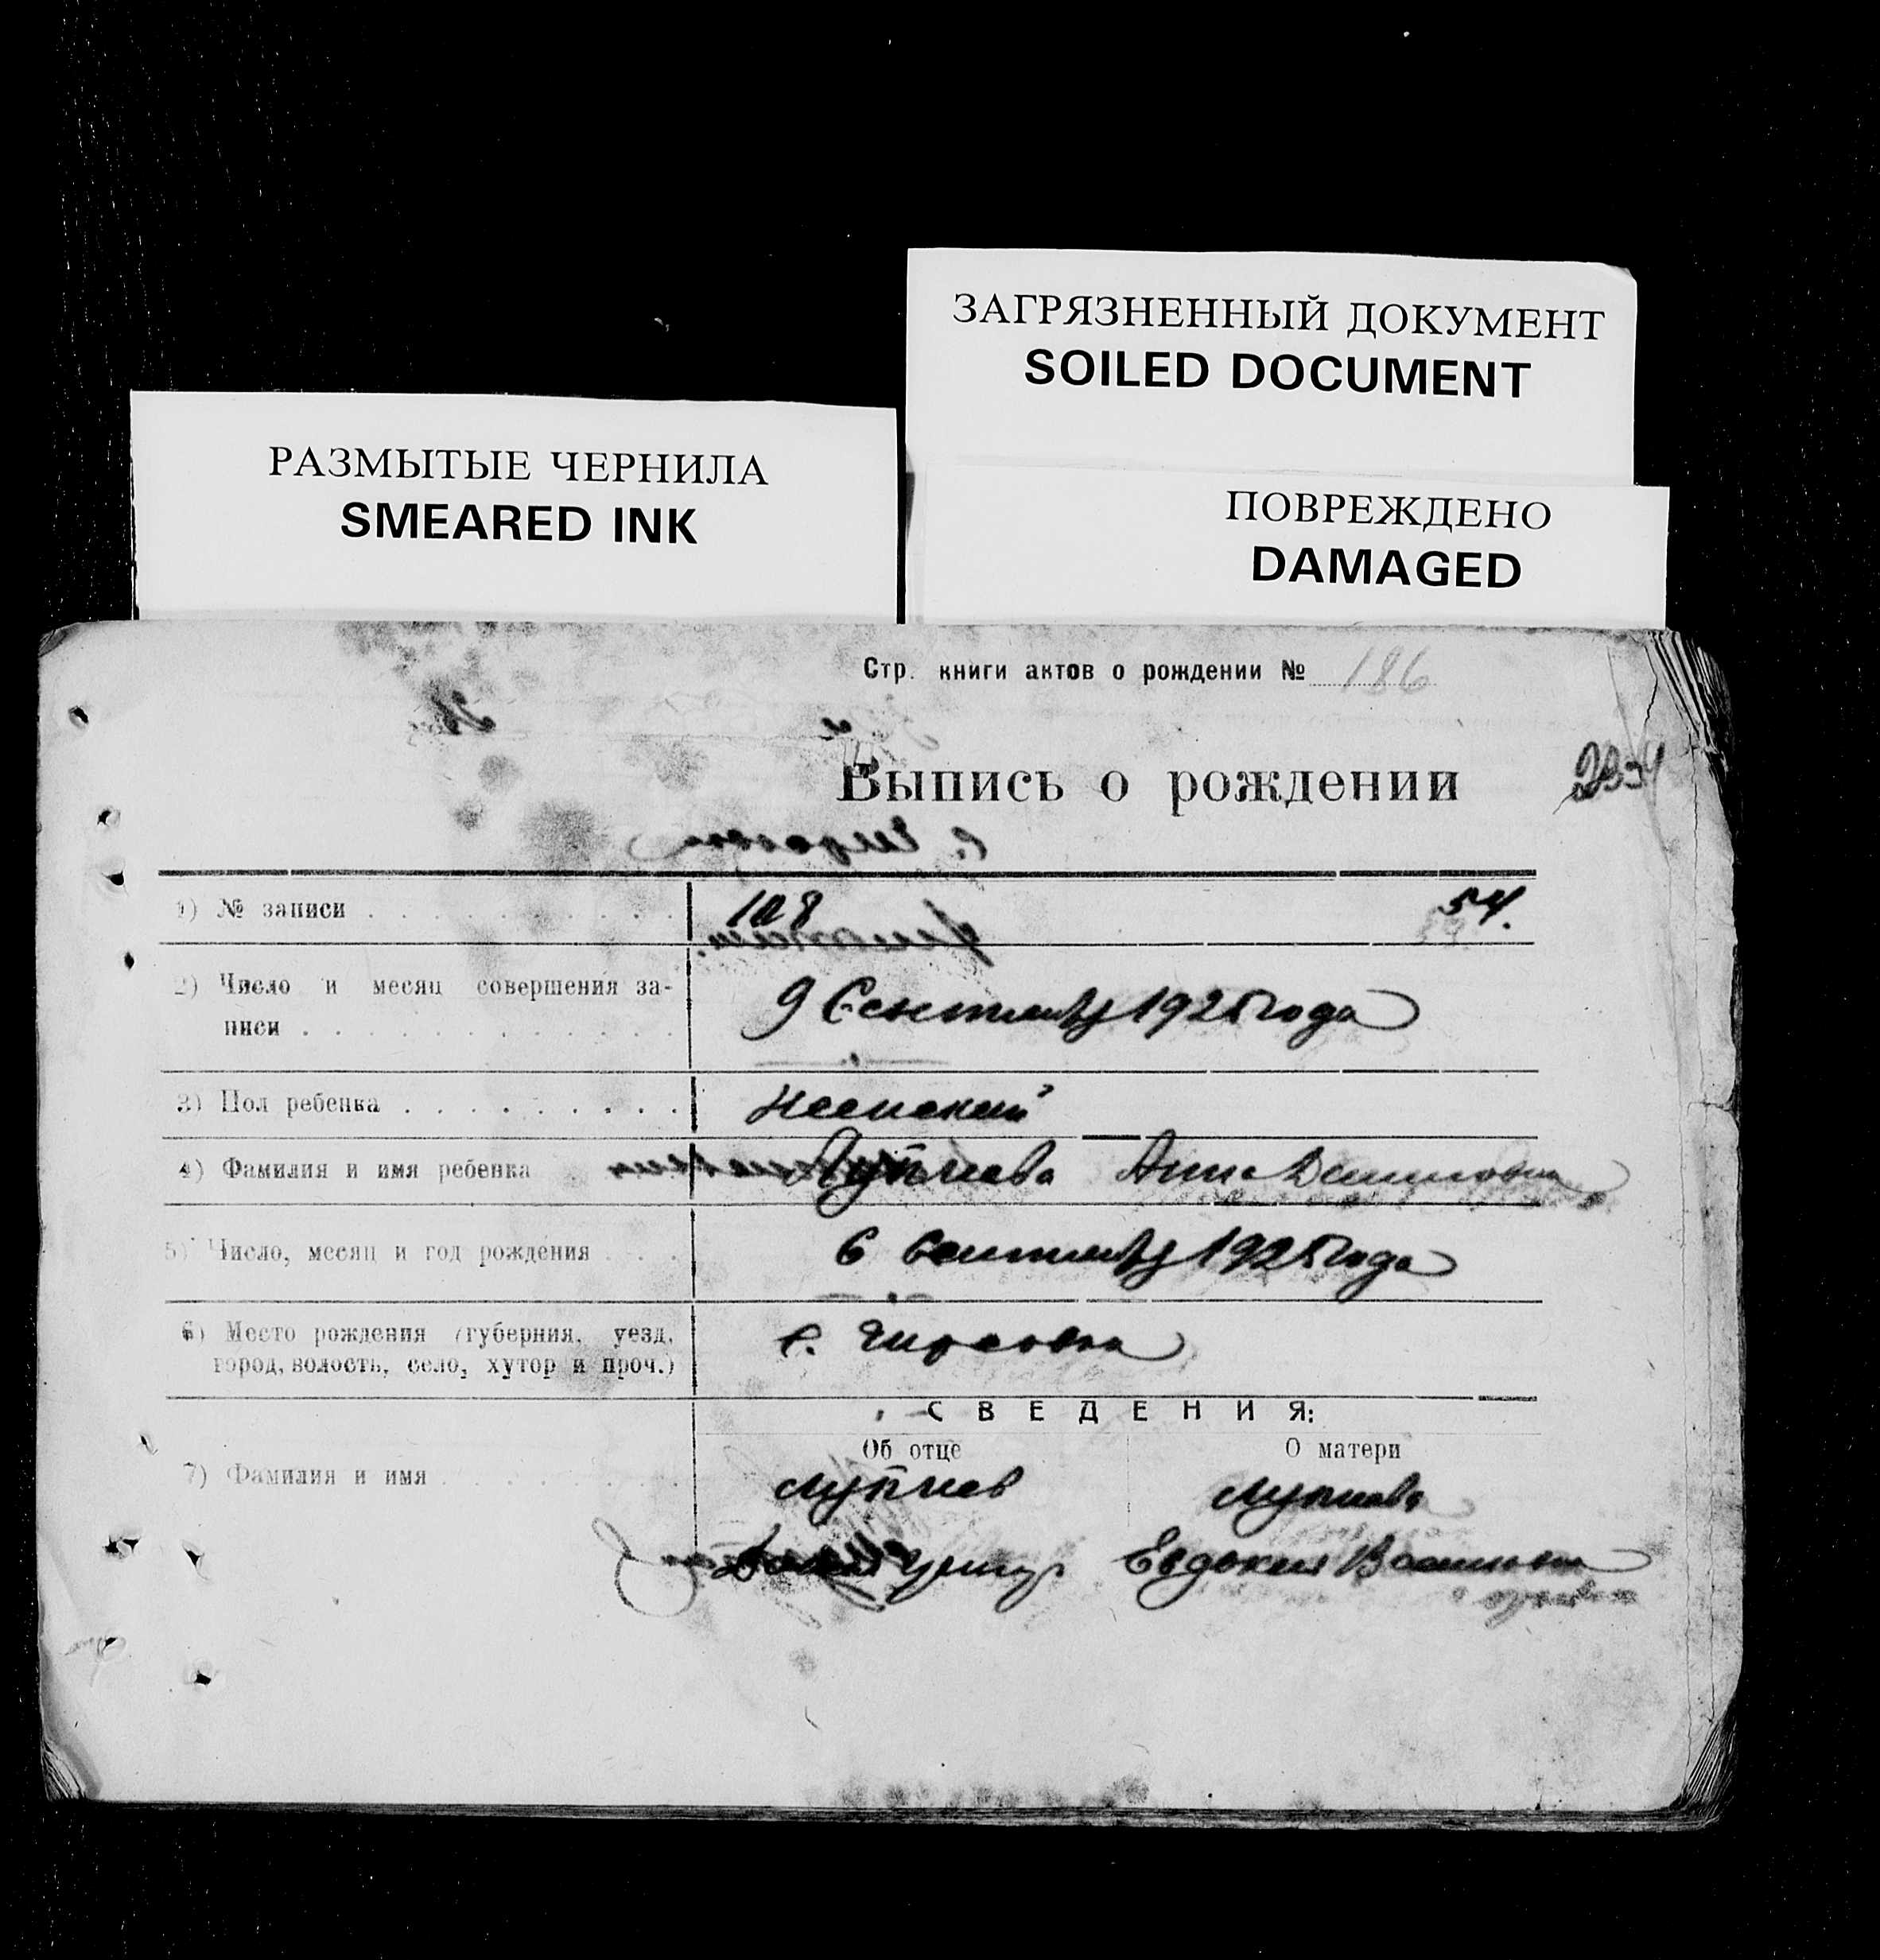 ЗАГРЯЗНЕННЫЙ ДОКУМЕНТ
SOILED DOCUMENT
РАЗМЫТЫЕ ЧЕРНИЛА
SMEARED INK
ПОВРЕЖДЕНО
DAMAGED
Стр. книги актов о рождении № 186
Выпись о рождении
1) № записи 108 54.
2) Число и месяц совершения за-
писи 9 Сентября 1925 года
3) Пол ребенка Женский
4) Фамилия и имя ребенка Анна
5) Число, месяц и год рождения 6 Сентября 1925 года
6) Место рождения (губерния, уезд,
город, волость, село, хутор и проч.) с.
СВЕДЕНИЯ:
Об отце О матери
7) Фамилия и имя
Евдокия